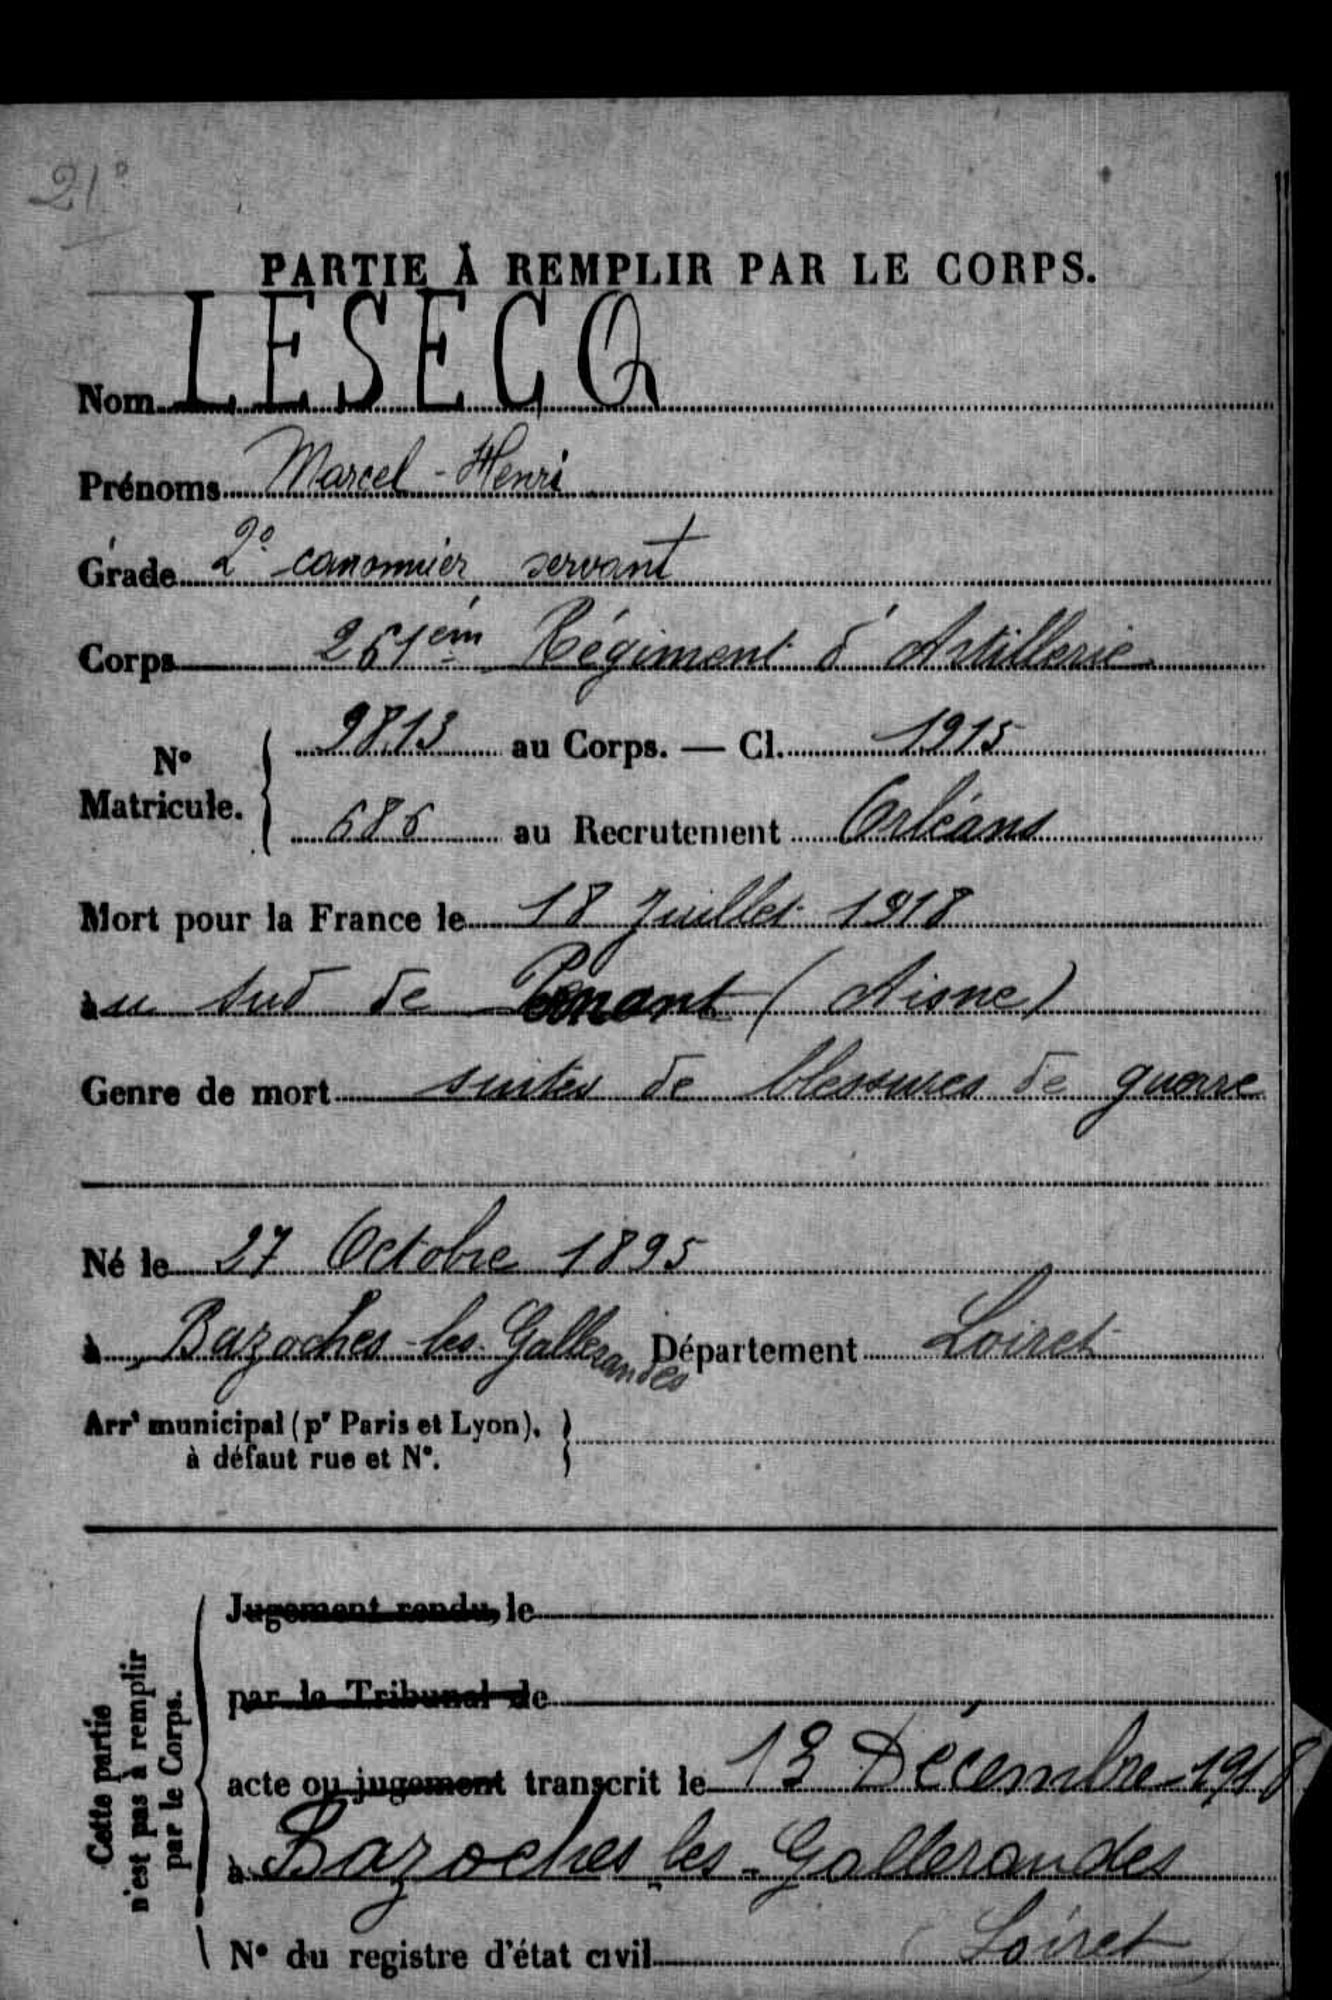 21°
PARTIE À REMPLIR PAR LE CORPS.
Nom LESECQ
Prénoms Marcel - Henri
Grade 2° canonnier servant
Corps 261ém Régiment d'Artillerie
N° Matricule. 9813 au Corps. — Cl. 1915
686 au Recrutement Orléans
Mort pour la France le 18 Juillet 1918
au sud de Pernant (Aisne)
Genre de mort suites de blessures de guerre
Né le 27 Octobre 1895
à Bazoches-les-Gallerandes Département Loiret
Arrt municipal (pr Paris et Lyon),
à défaut rue et N°.
Cette partie n'est pas à remplir par le Corps.
Jugement rendu, le
par le Tribunal de
acte ou jugement transcrit le 13 Décembre 1918
à Bazoches les-Gallerandes
N° du registre d'état civil (Loiret)